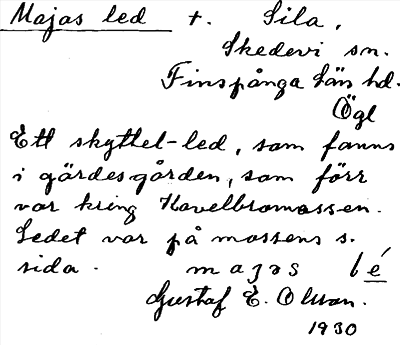 Majas led t. Sila,
Skedevi sn.
Finspånga läns hd.
Ögl
Ett skyttel-led, som fanns
i gärdesgården, som förr
var kring Kavelbromossen.
Ledet var på mossens s.
sida. majas lé
Gustaf E. Olsson.
1930